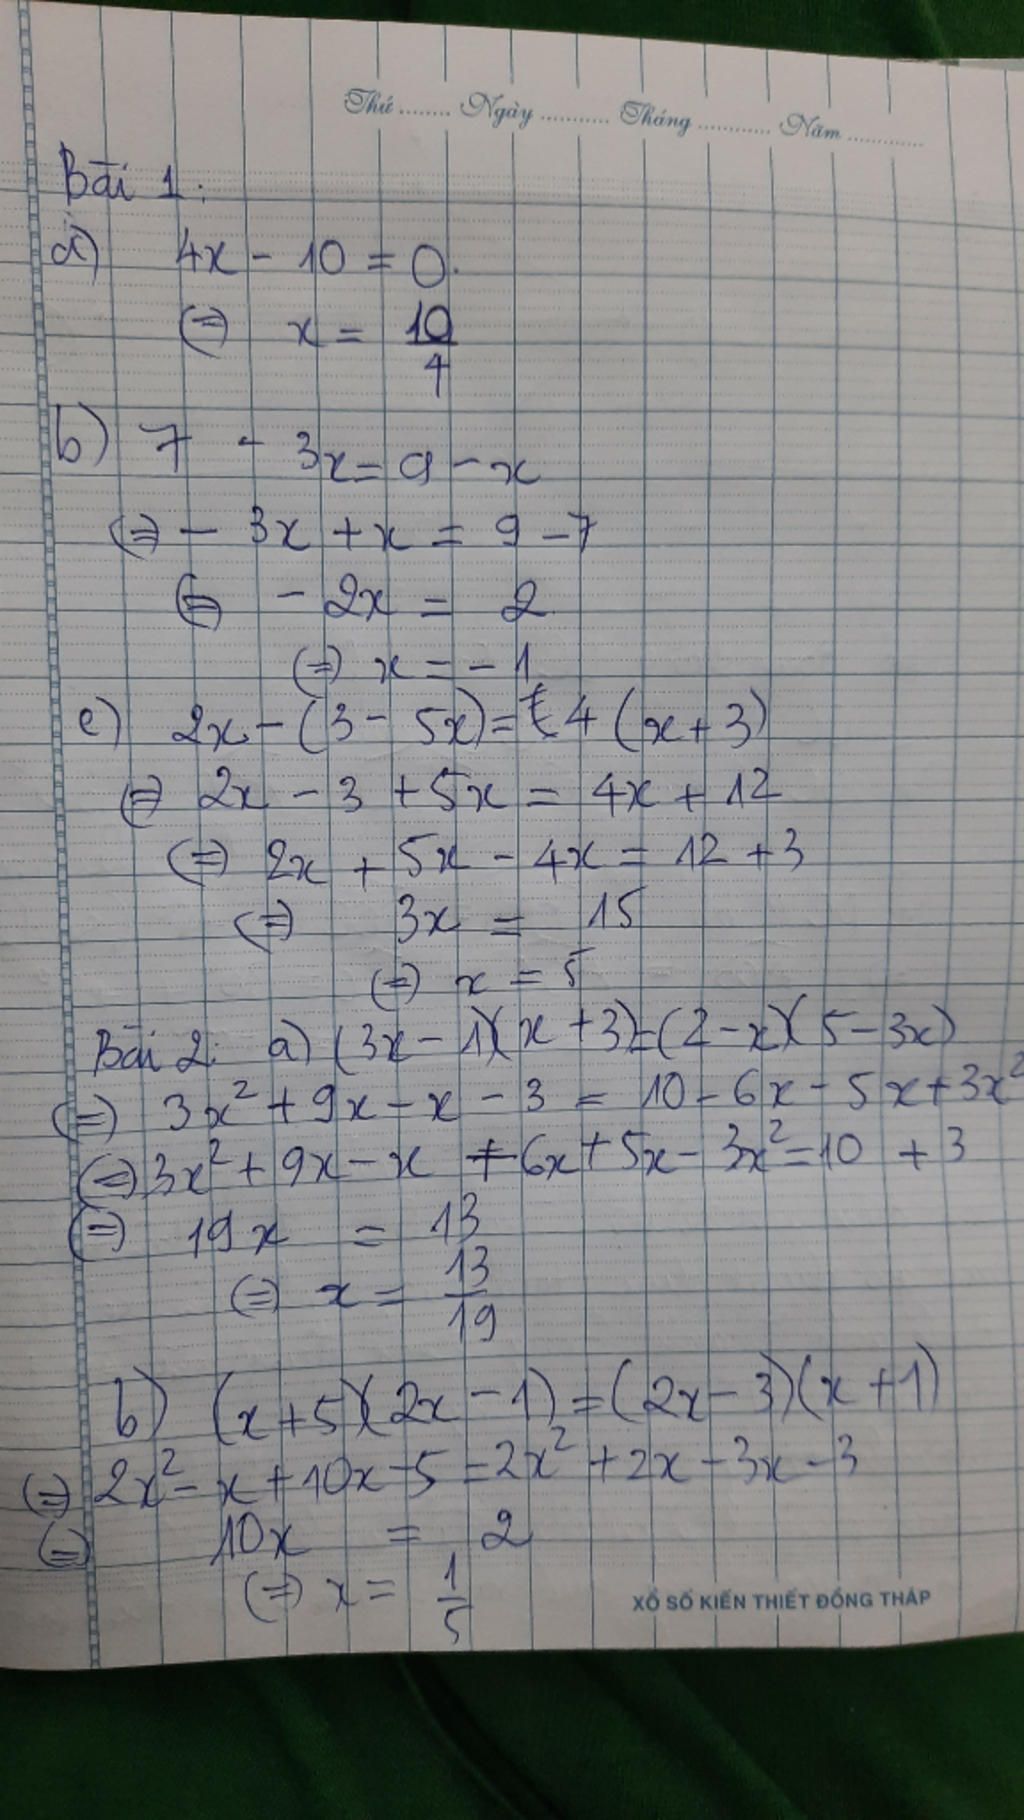 Thứ ........ Ngày ........... Tháng ........... Năm ............
Bài 1:
a) 4x - 10 = 0.
(=) x = 10/4
b) 7 - 3x = 9 - x
(=) - 3x + x = 9 - 7
(=) - 2x = 2
(=) x = - 1
c) 2x - (3 - 5x) = 4 (x + 3)
(=) 2x - 3 + 5x = 4x + 12
(=) 2x + 5x - 4x = 12 + 3
(=) 3x = 15
(=) x = 5
Bài 2: a) (3x - 1)(x + 3) = (2 - x)(5 - 3x)
(=) 3x² + 9x - x - 3 = 10 - 6x - 5x + 3x²
(=) 3x² + 9x - x + 6x + 5x - 3x² = 10 + 3
(=) 19x = 13
(=) x = 13/19
b) (x + 5)(2x - 1) = (2x - 3)(x + 1)
(=) 2x² - x + 10x - 5 = 2x² + 2x - 3x - 3
(=) 10x = 2
(=) x = 1/5
XỔ SỐ KIẾN THIẾT ĐỒNG THÁP